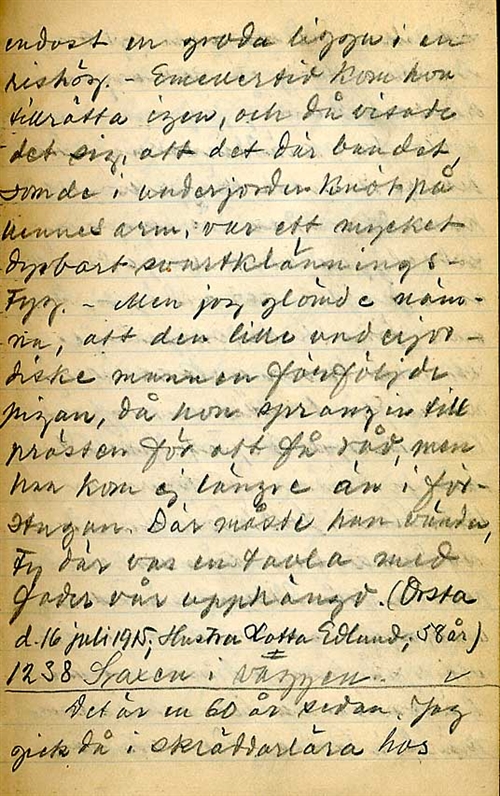 endast en groda ligga i en
rishög. - Emellertid kom hon
tillrätta igen, och då visade
det sig, att det där bandet,
som de i underjorden knöt på
hennes arm, var ett mycket
dyrbart svartklännings-
tyg. - Men jag glömde näm-
na, att den lille underjor-
diske mannen förföljde
pigan, då hon sprang in till
prästen för att få råd, men
han kom ej längre än i för-
stugan. Där måste han vända,
ty där var en tavla med
fader vår upphängd. (Orsta
d. 16 juli 1915; Hustru Lotta Edlund, 58 år)
1238 Saxen i väggen. ✓
Det är en 60 år sedan. Jag
gick då i skräddarlära hos